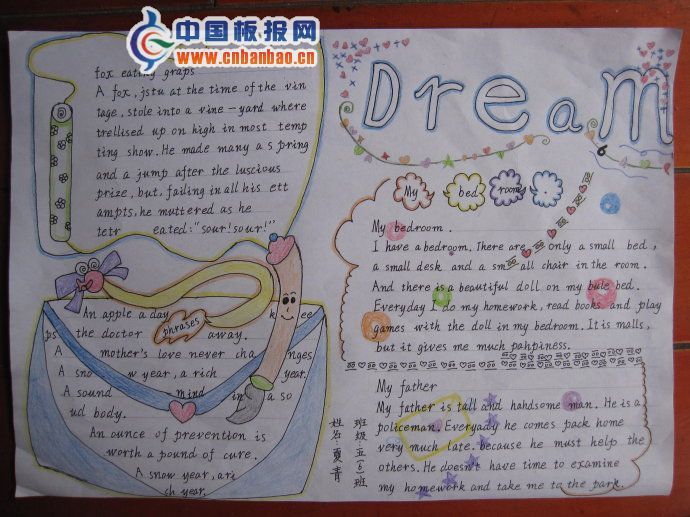 中国板报网
www.cnbanbao.cn
fox eating graps
A fox, jstu at the time of the vin
tage, stole into a vine-yard where
trellised up on high in most temp
ting show. He made many a spring
and a jump after the luscious
prize, but, failing in all his ett
ampts, he muttered as he
tetr eated: "sour! sour!"
An apple a day kee
ps the doctor away.
phrases
A mother's love never changes
A snow year, a rich year.
A sound mind in a so
ud body.
An ounce of prevention is
worth a pound of cure.
A snow year, ari
ch year.
Dream
6
My bedroom.
My bedroom.
I have a bedroom. There are only a small bed,
a small desk and a small chair in the room.
And there is a beautiful doll on my bule bed.
Everyday I do my homework, read books and play
games with the doll in my bedroom. It is malls,
but it gives me much pahpiness.
My father
My father is tall and handsome man. He is a
policeman. Everyady he comes pack home
very much late. because he must help the
others. He doesn't have time to examine
my homework and take me to the park.
班级:五(6)班
姓名:夏青